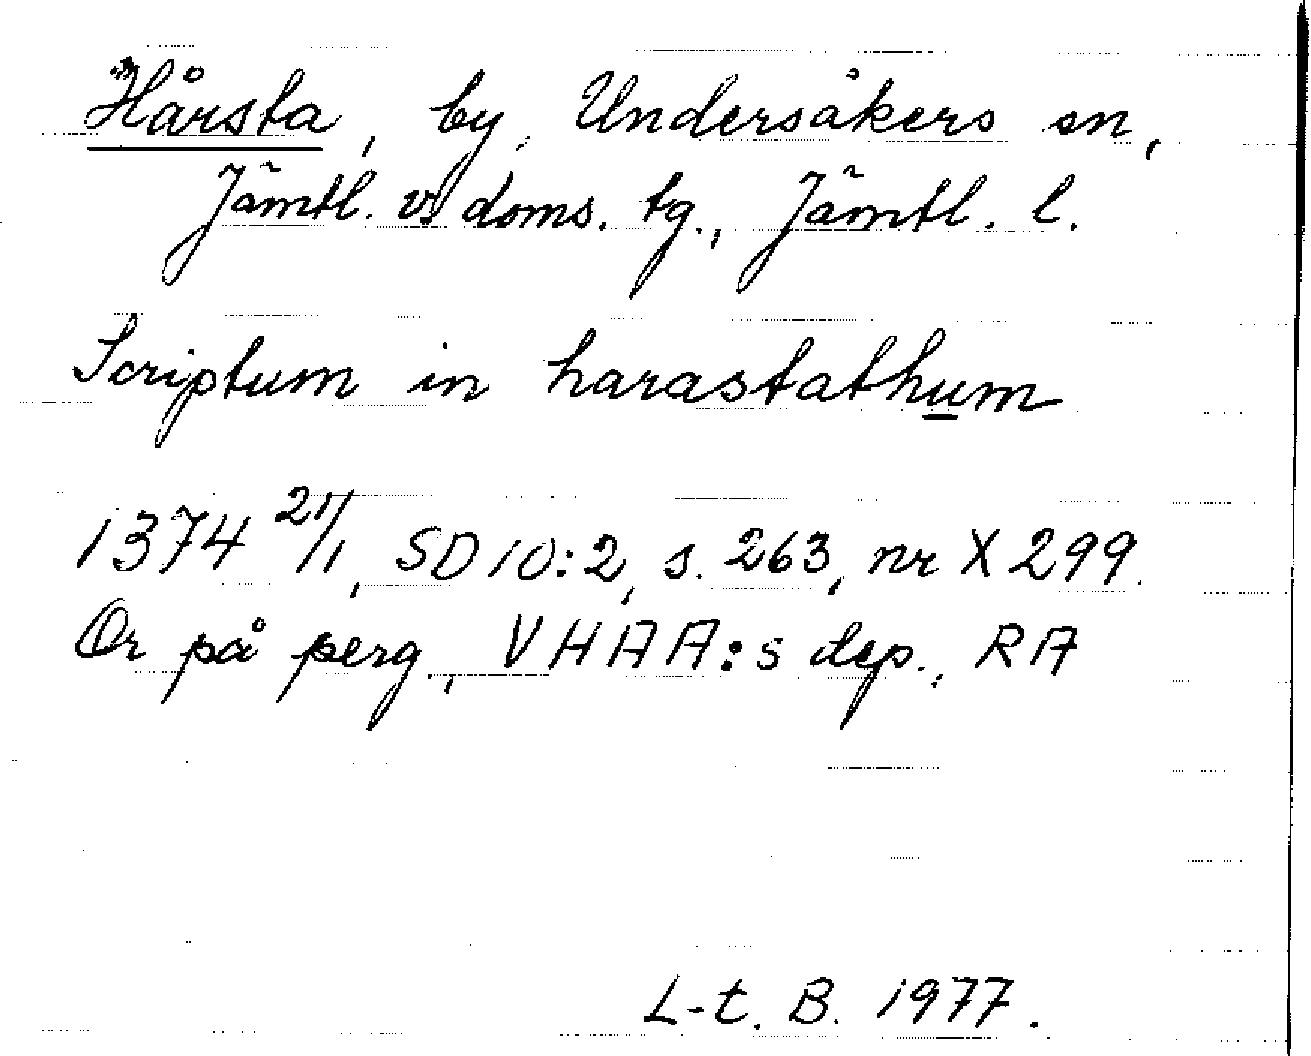 Hårsta, by, Undersåkers sn,
Jämtl. v. doms. tg., Jämtl. l.
Scriptum in harastathum
1374 21/1, SD 10:2, s. 263, nr X 299.
Or på perg., VHAA:s dep., RA
L-t. B. 1977.